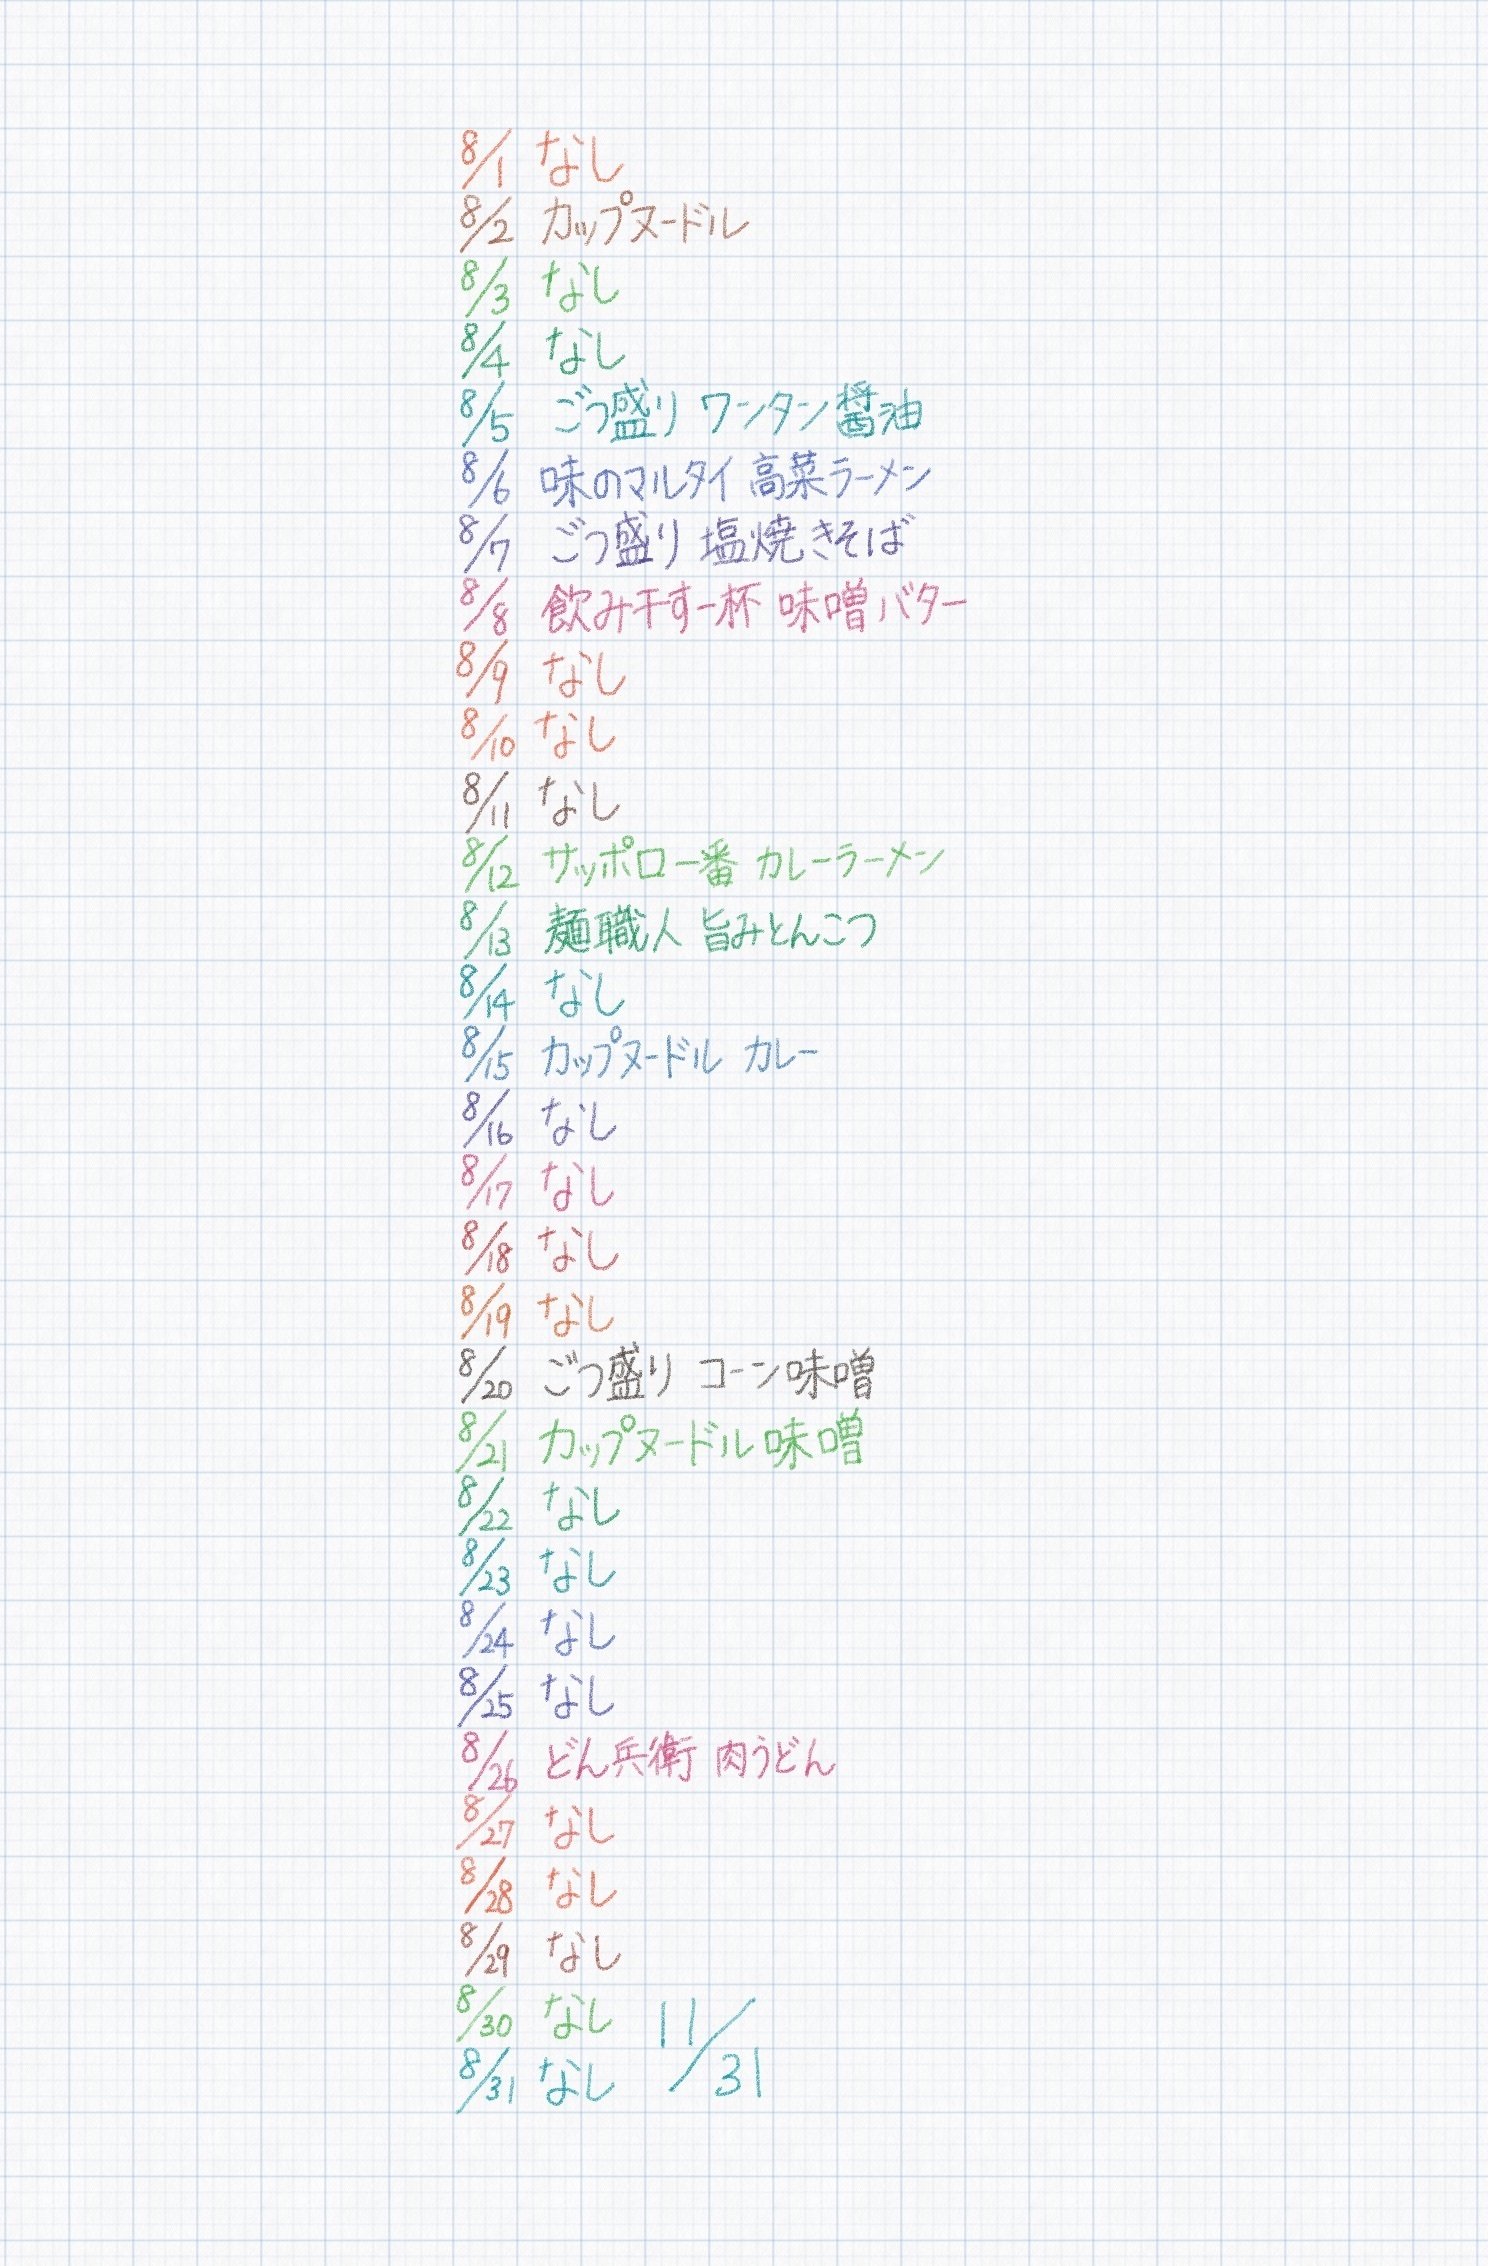 8/1 なし
8/2 カップヌードル
8/3 なし
8/4 なし
8/5 ごつ盛り ワンタン醤油
8/6 味のマルタイ 高菜ラーメン
8/7 ごつ盛り 塩焼きそば
8/8 飲み干す一杯 味噌バター
8/9 なし
8/10 なし
8/11 なし
8/12 サッポロ一番 カレーラーメン
8/13 麺職人 旨みとんこつ
8/14 なし
8/15 カップヌードル カレー
8/16 なし
8/17 なし
8/18 なし
8/19 なし
8/20 ごつ盛り コーン味噌
8/21 カップヌードル 味噌
8/22 なし
8/23 なし
8/24 なし
8/25 なし
8/26 どん兵衛 肉うどん
8/27 なし
8/28 なし
8/29 なし
8/30 なし
8/31 なし
11/31